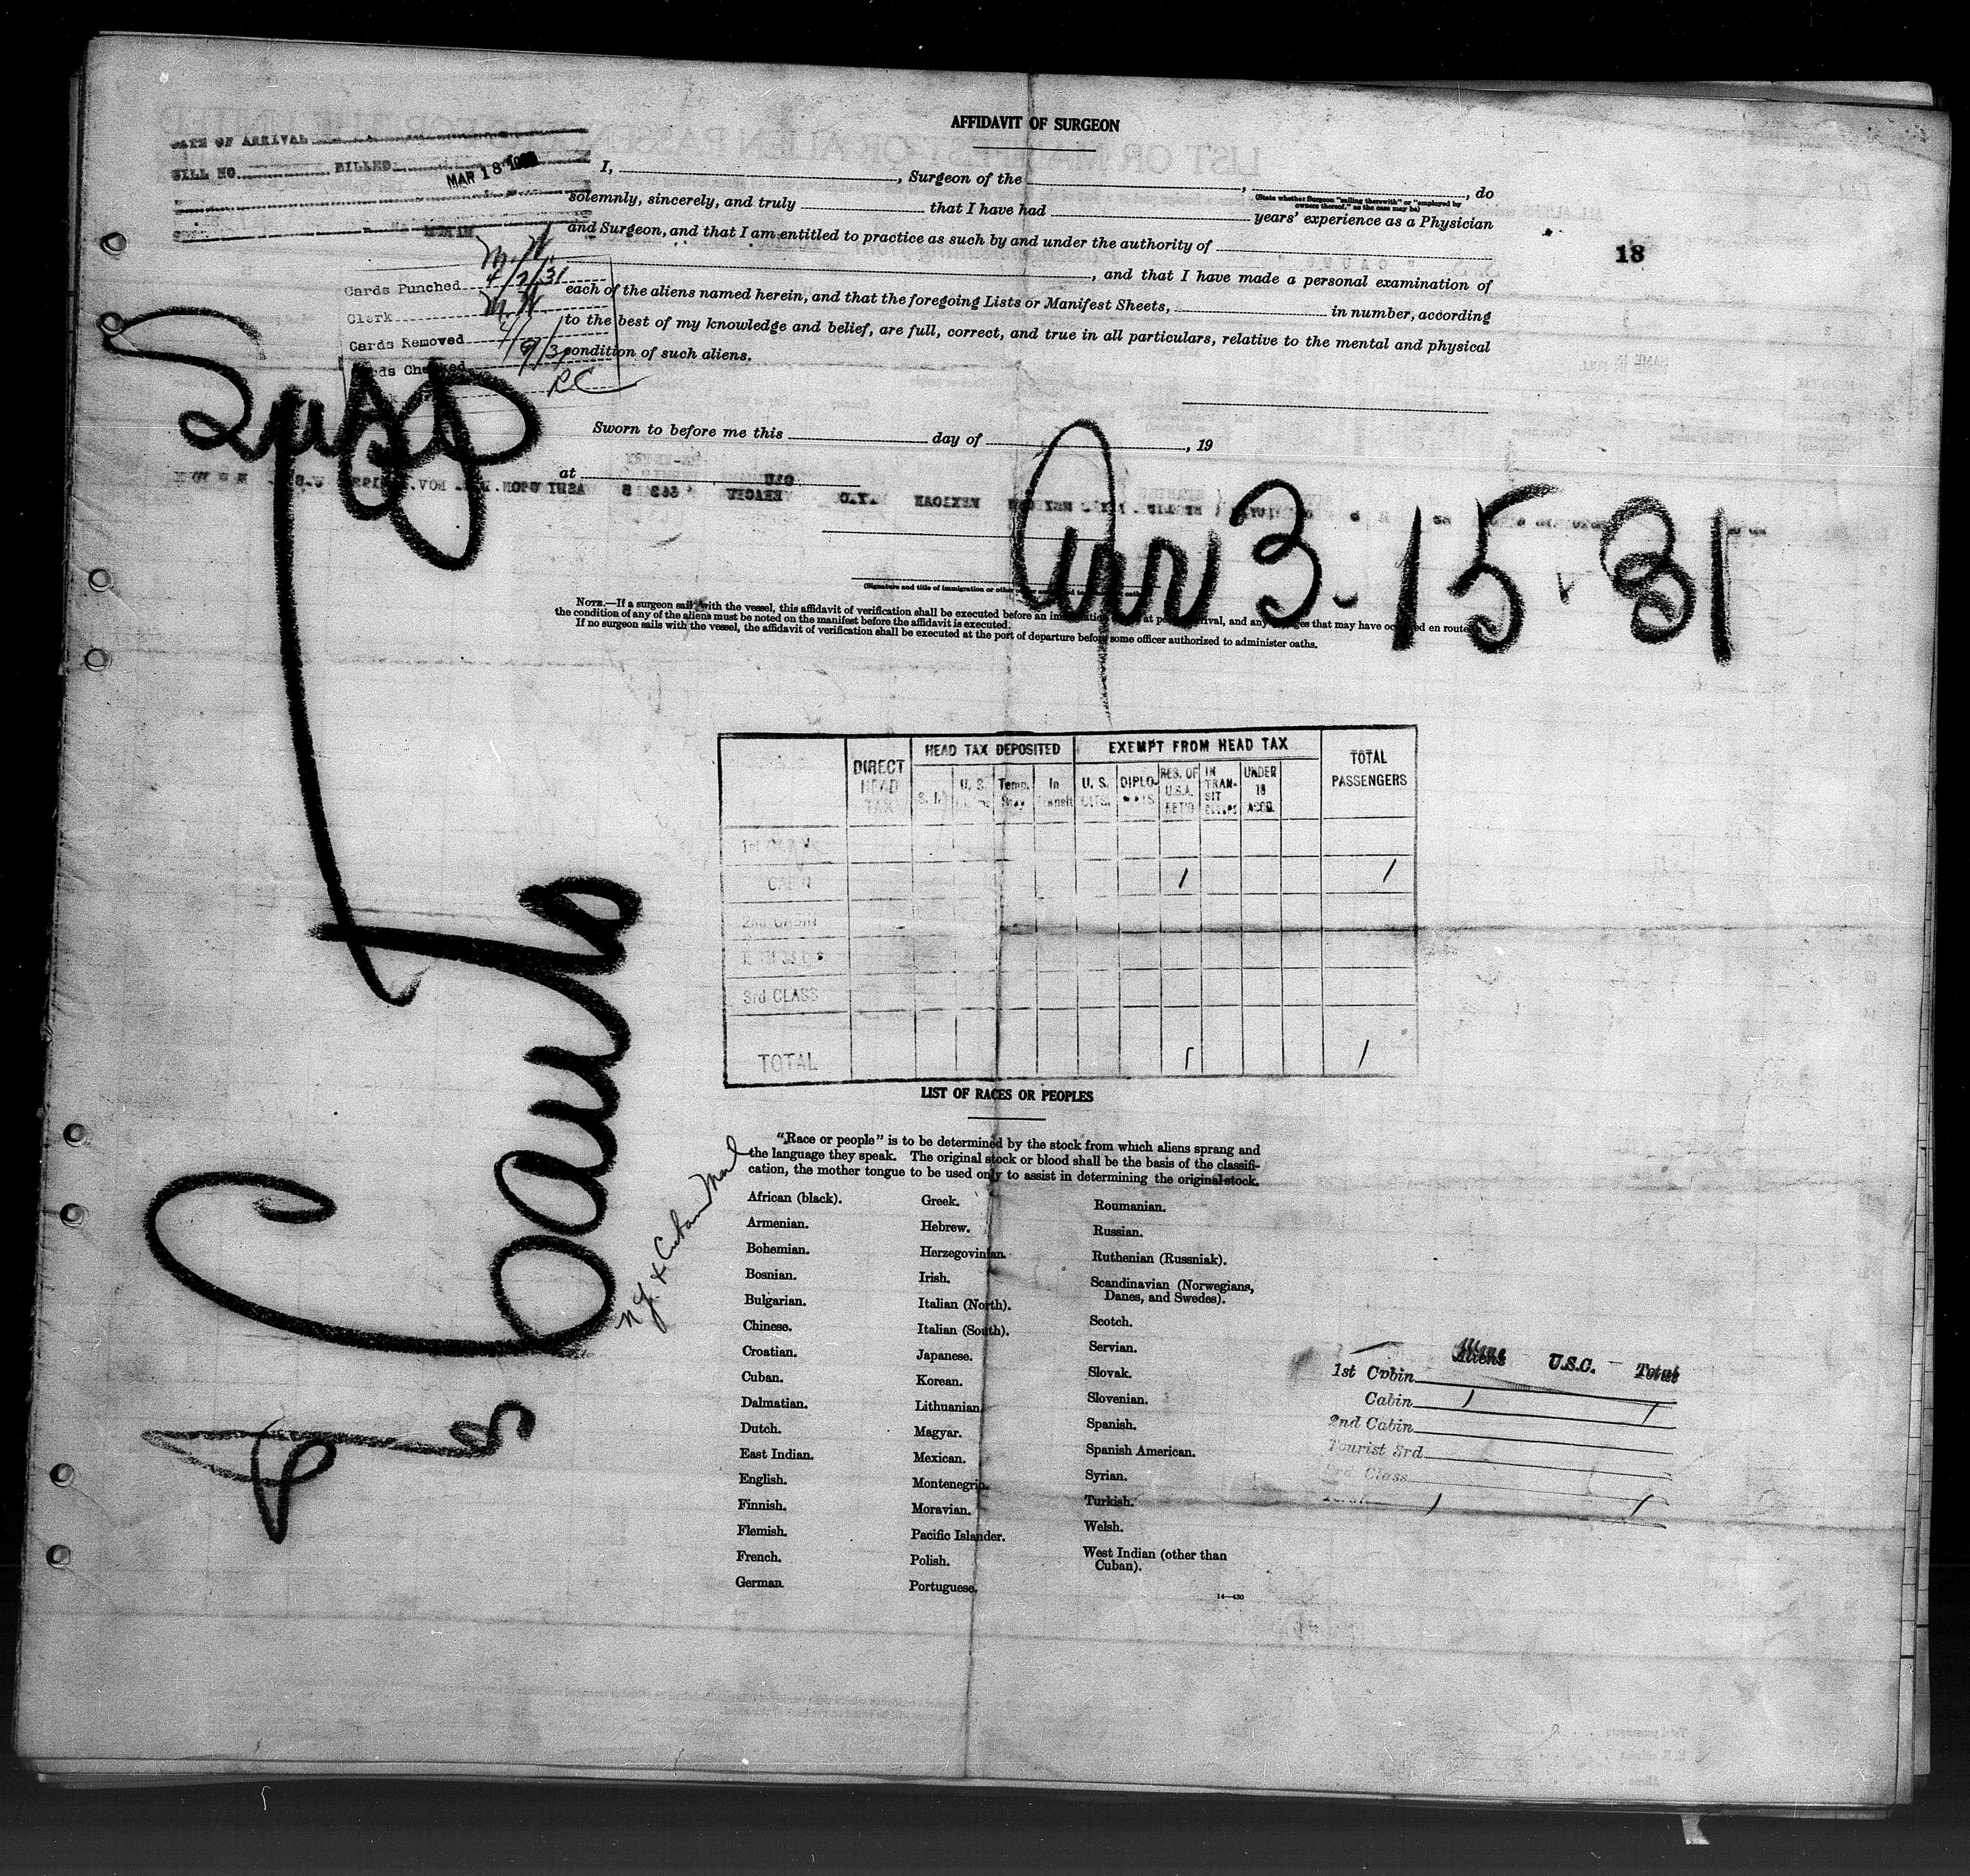 AFFIDAVIT OF SURGEON
DATE OF ARRIVAL
BILL NO. BILLED
MAR 18
I, , Surgeon of the , , do
(State whether Surgeon "sailing therewith" or "employed by
owners thereof," as the case may be)
solemnly, sincerely, and truly that I have had years' experience as a Physician
and Surgeon, and that I am entitled to practice as such by and under the authority of
, and that I have made a personal examination of
each of the aliens named herein, and that the foregoing Lists or Manifest Sheets, in number, according
to the best of my knowledge and belief, are full, correct, and true in all particulars, relative to the mental and physical
condition of such aliens.
18
M.W.
Cards Punched 4/7/31
Clerk M.W
Cards Removed
Cards Checked
RC
Sworn to before me this day of , 19
at
Arr 3-15-31
(Signature and title of immigration or other
NOTE.—If a surgeon sails with the vessel, this affidavit of verification shall be executed before an immigration at port arrival, and any changes that may have occurred en route
the condition of any of the aliens must be noted on the manifest before the affidavit is executed.
If no surgeon sails with the vessel, the affidavit of verification shall be executed at the port of departure before some officer authorized to administer oaths.
DIRECT HEAD TAX
HEAD TAX DEPOSITED
EXEMPT FROM HEAD TAX
TOTAL PASSENGERS
S. I. U. S. Temp. Stay In Transit U. S. CITS. DIPLOMATS RES. OF U.S.A. RET'D IN TRANSIT UNDER 16 ACCD.
1st CABIN
CABIN 1 1
2nd CABIN
3rd CLASS
TOTAL 1 1
SS Cauto
N.Y. & Cuban Mail
LIST OF RACES OR PEOPLES
"Race or people" is to be determined by the stock from which aliens sprang and
the language they speak. The original stock or blood shall be the basis of the classifi-
cation, the mother tongue to be used only to assist in determining the original stock.
African (black).
Armenian.
Bohemian.
Bosnian.
Bulgarian.
Chinese.
Croatian.
Cuban.
Dalmatian.
Dutch.
East Indian.
English.
Finnish.
Flemish.
French.
German.
Greek.
Hebrew.
Herzegovinian.
Irish.
Italian (North).
Italian (South).
Japanese.
Korean.
Lithuanian.
Magyar.
Mexican.
Montenegrin.
Moravian.
Pacific Islander.
Polish.
Portuguese.
Roumanian.
Russian.
Ruthenian (Russniak).
Scandinavian (Norwegians,
Danes, and Swedes).
Scotch.
Servian.
Slovak.
Slovenian.
Spanish.
Spanish American.
Syrian.
Turkish.
Welsh.
West Indian (other than
Cuban).
14—430
Aliens U.S.C. Total
1st Cabin
Cabin 1 1
2nd Cabin
Tourist 3rd
3rd Class
Total 1 1